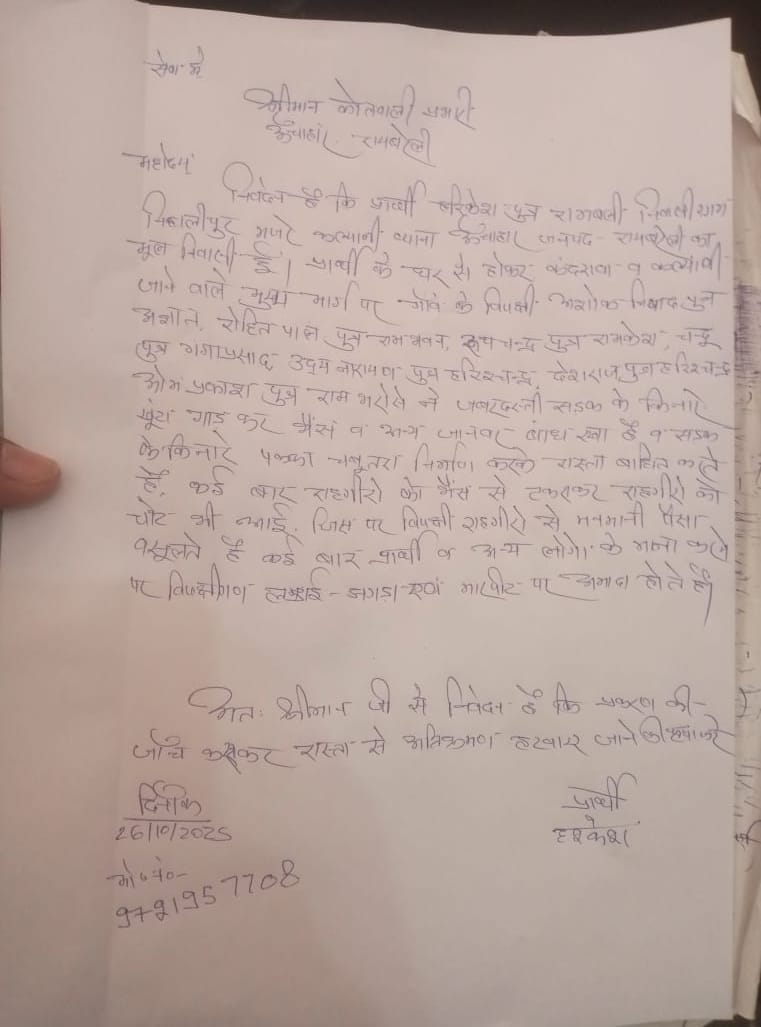 सेवा मे
श्रीमान कोतवाली प्रभारी
ऊँचाहार, रायबरेली
महोदय
निवेदन है कि प्रार्थी हरिकेश पुत्र रामबली निवासी ग्राम
मजरे कल्यानी थाना ऊँचाहार जनपद- रायबरेली का
मूल निवासी हूँ। प्रार्थी के घर से होकर कंदरावा व कल्यानी
जाने वाले मुख्य मार्ग पर गाँव के विपक्षी अशोक निषाद पुत्र
रोहित पाल पुत्र राम भवन, रूप चन्द्र पुत्र रामकेश, चन्दू
पुत्र गंगाप्रसाद, उदय नारायण पुत्र हरिश्चन्द्र, देशराज पुत्र हरिश्चन्द्र
ओम प्रकाश पुत्र राम भरोसे ने जबरदस्ती सडक के किनारे
खूंटा गाड़ कर भैंस व अन्य जानवर बांध रखा है व सडक
के किनारे पक्का चबूतरा निर्माण करके रास्ता बाधित करते
है, कई बार राहगीरो को भैंस से टकराकर राहगीरो को
चोट भी आई, जिस पर विपक्षी राहगीरो से मनमानी पैसा
वसूलते है कई बार प्रार्थी व अन्य लोगो के मना करने
पर विपक्षीगण लड़ाई-झगड़ा एवं मारपीट पर अमादा होते है।
अतः श्रीमान जी से निवेदन है कि प्रकरण की-
जाँच कराकर रास्ता से अतिक्रमण हटवाए जाने की कृपा करे
दिनाँक
26/10/2025
प्रार्थी
हरिकेश
मो० नं०-
9721957708